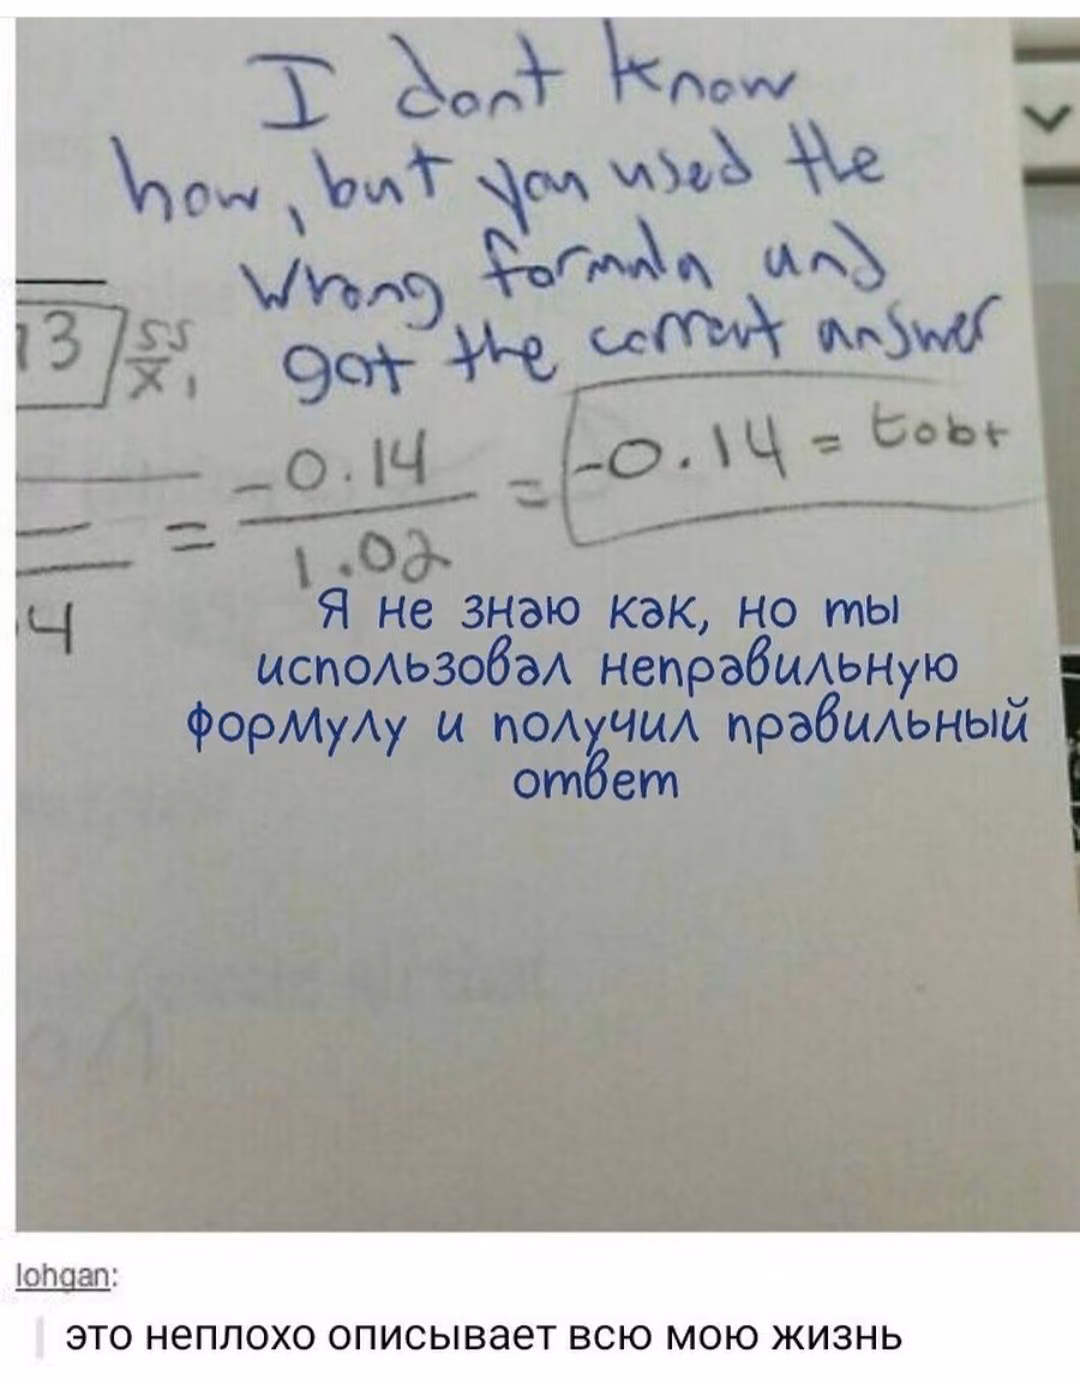 I dont know
how, but you used the
wrong formula and
got the correct answer
13
SS
X1
-0.14
= ——— = -0.14 = tobt
1.02
4
Я не знаю как, но ты
использовал неправильную
формулу и получил правильный
ответ
lohgan:
это неплохо описывает всю мою жизнь